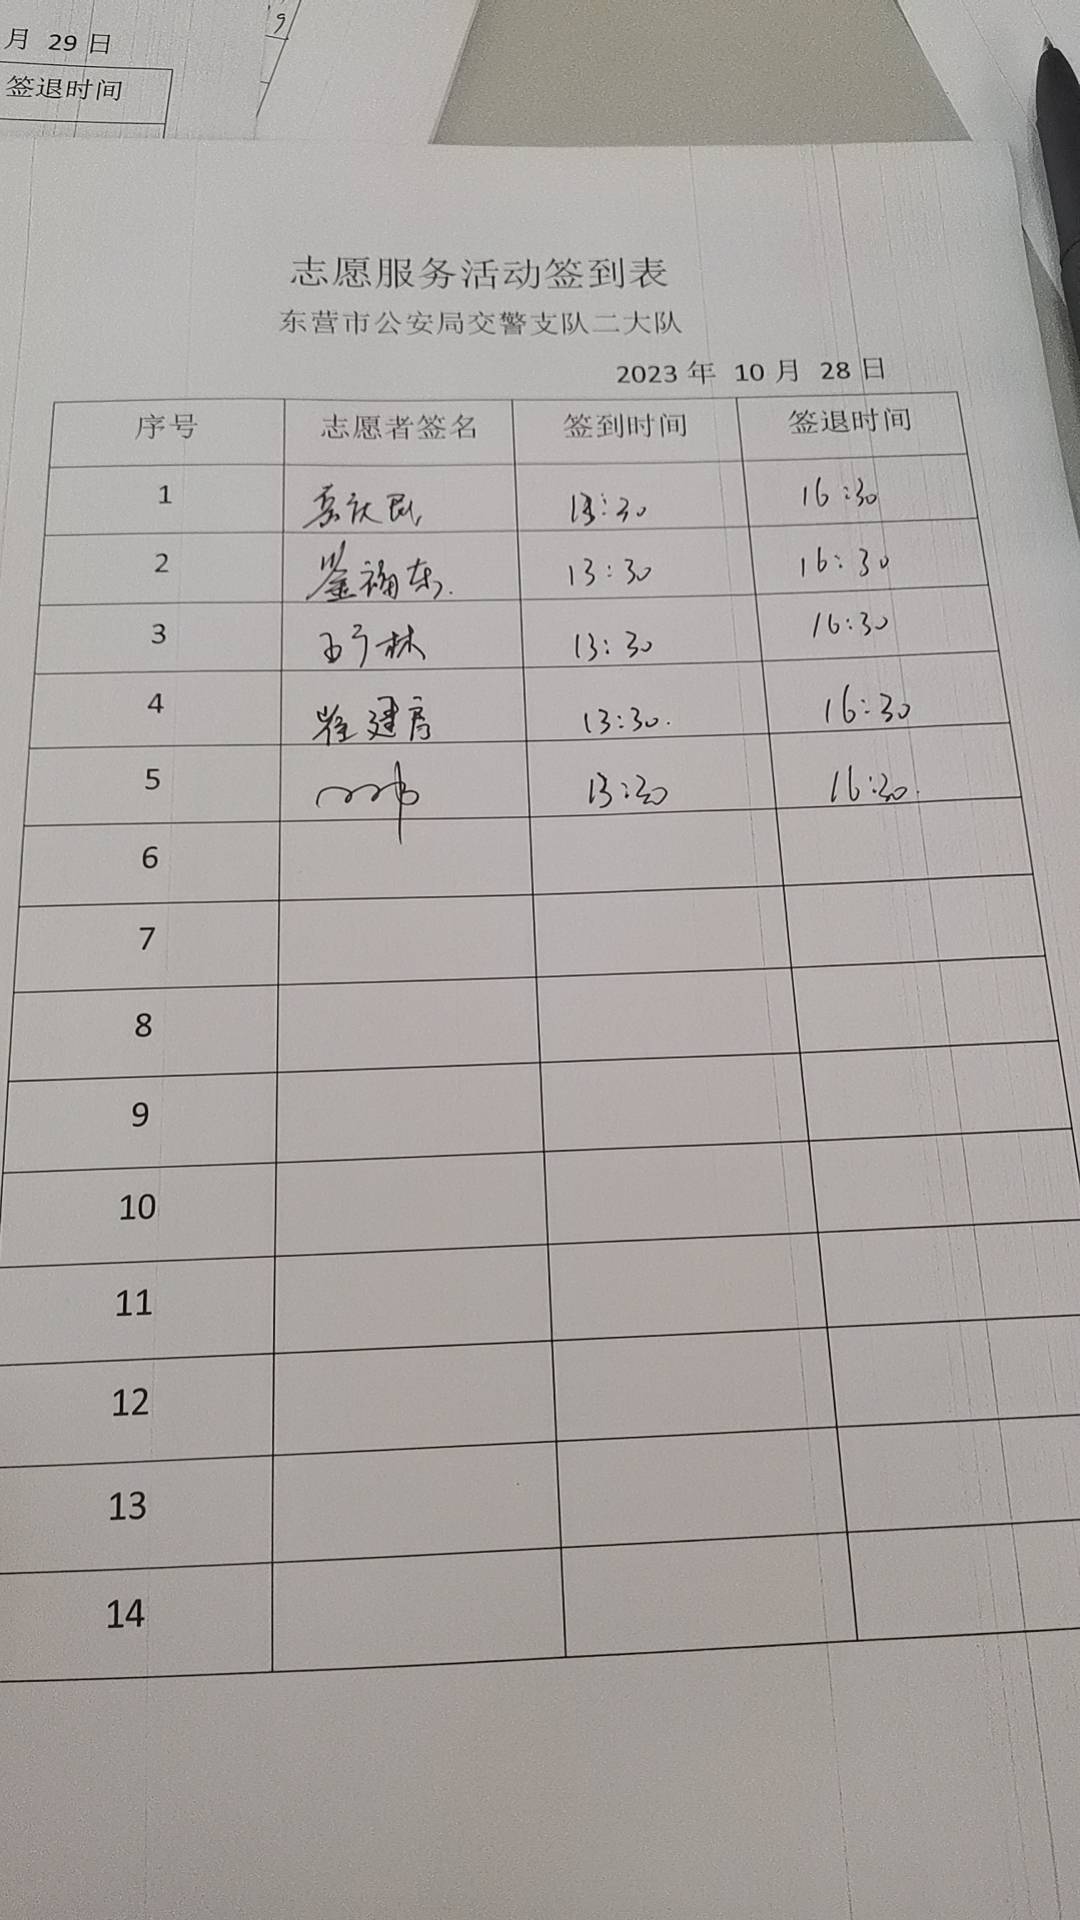 月 29 日
签退时间
志愿服务活动签到表
东营市公安局交警支队二大队
2023 年 10 月 28 日
序号 志愿者签名 签到时间 签退时间
1 13:30 16:30
2 福东. 13:30 16:30
3 林 13:30 16:30
4 崔建房 13:30. 16:30
5 13:30 16:30.
6
7
8
9
10
11
12
13
14